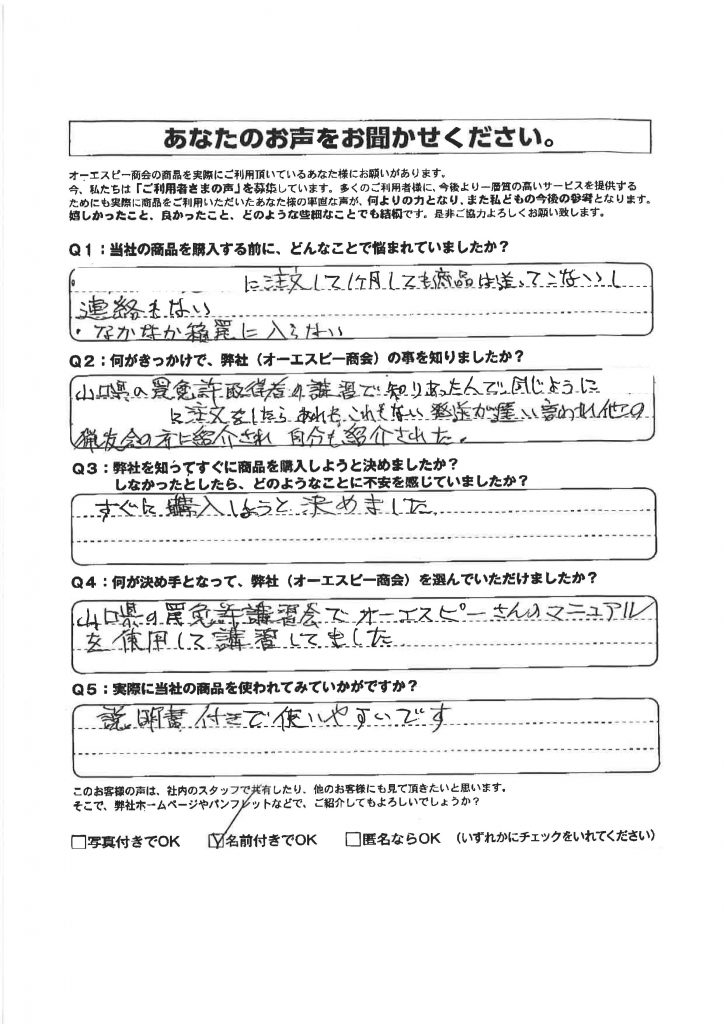 あなたのお声をお聞かせください。
オーエスピー商会の商品を実際にご利用頂いているあなた様にお願いがあります。
今、私たちは「ご利用者さまの声」を募集しています。多くのご利用者様に、今後より一層質の高いサービスを提供する
ためにも実際に商品をご利用いただいたあなた様の率直な声が、何よりの力となり、また私どもの今後の参考となります。
嬉しかったこと、良かったこと、どのような些細なことでも結構です。是非ご協力よろしくお願い致します。
Q1：当社の商品を購入する前に、どんなことで悩まれていましたか？
・ に注文して1ヶ月しても商品は送ってこないし
連絡もない
・なかなか箱罠に入らない
Q2：何がきっかけで、弊社（オーエスピー商会）の事を知りましたか？
山口県の罠免許取得者の講習で知りあったんで同じように
に注文をしたら あれもこれもない 発送が遅い 言われ 他の
猟友会の方に紹介され 自分も紹介された。
Q3：弊社を知ってすぐに商品を購入しようと決めましたか？
しなかったとしたら、どのようなことに不安を感じていましたか？
すぐに購入しようと決めました
Q4：何が決め手となって、弊社（オーエスピー商会）を選んでいただけましたか？
山口県の罠免許講習会でオーエスピーさんのマニュアル
を使用して講習してました
Q5：実際に当社の商品を使われてみていかがですか？
説明書付きで使いやすいです
このお客様の声は、社内のスタッフで共有したり、他のお客様にも見て頂きたいと思います。
そこで、弊社ホームページやパンフレットなどで、ご紹介してもよろしいでしょうか？
□写真付きでOK ☑名前付きでOK □匿名ならOK （いずれかにチェックをいれてください）